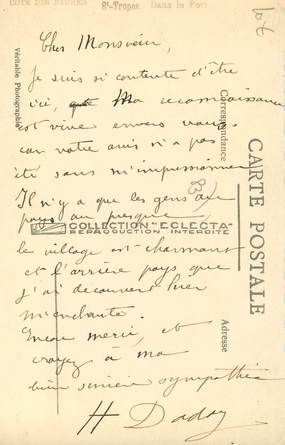 CÔTE DES MAURES St-Tropez Dans le Port
10€
Cher Monsieur,
Je suis si contente d'être
ici, Ma reconnaissance
est vive envers vous
car votre avis n'a pas
été sans m'impressionner
Il n'y a que les gens du
pays ou presque
COLLECTION "ECLECTA"
REPRODUCTION INTERDITE
le village est charmant
et l'arrière pays que
j'ai découvert hier
m'enchante.
Encore merci, et
croyez à ma
bien sincère sympathie
H
Véritable Photographie
Correspondance
CARTE POSTALE
Adresse